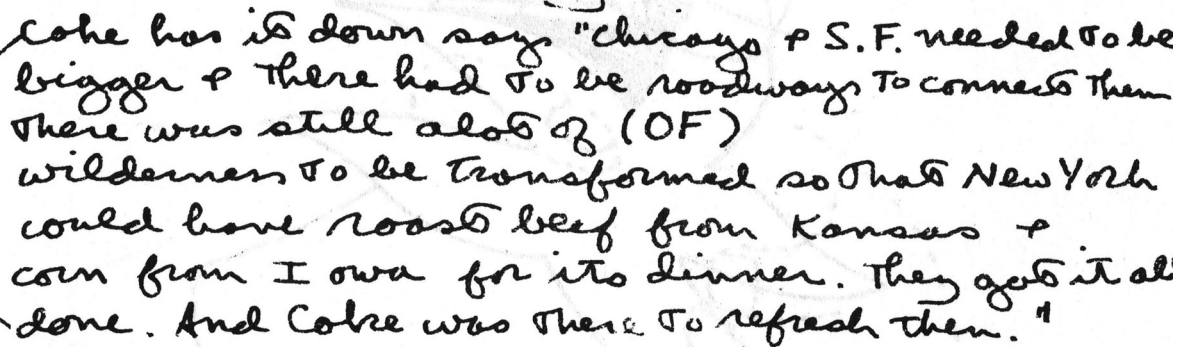 Coke has it down says "Chicago & S.F. needed to be
bigger & there had to be roadways to connect them
there was still alot of (OF)
wilderness to be transformed so that New York
could have roast beef from Kansas &
corn from Iowa for its dinner. They got it al
done. And Coke was there to refresh them."